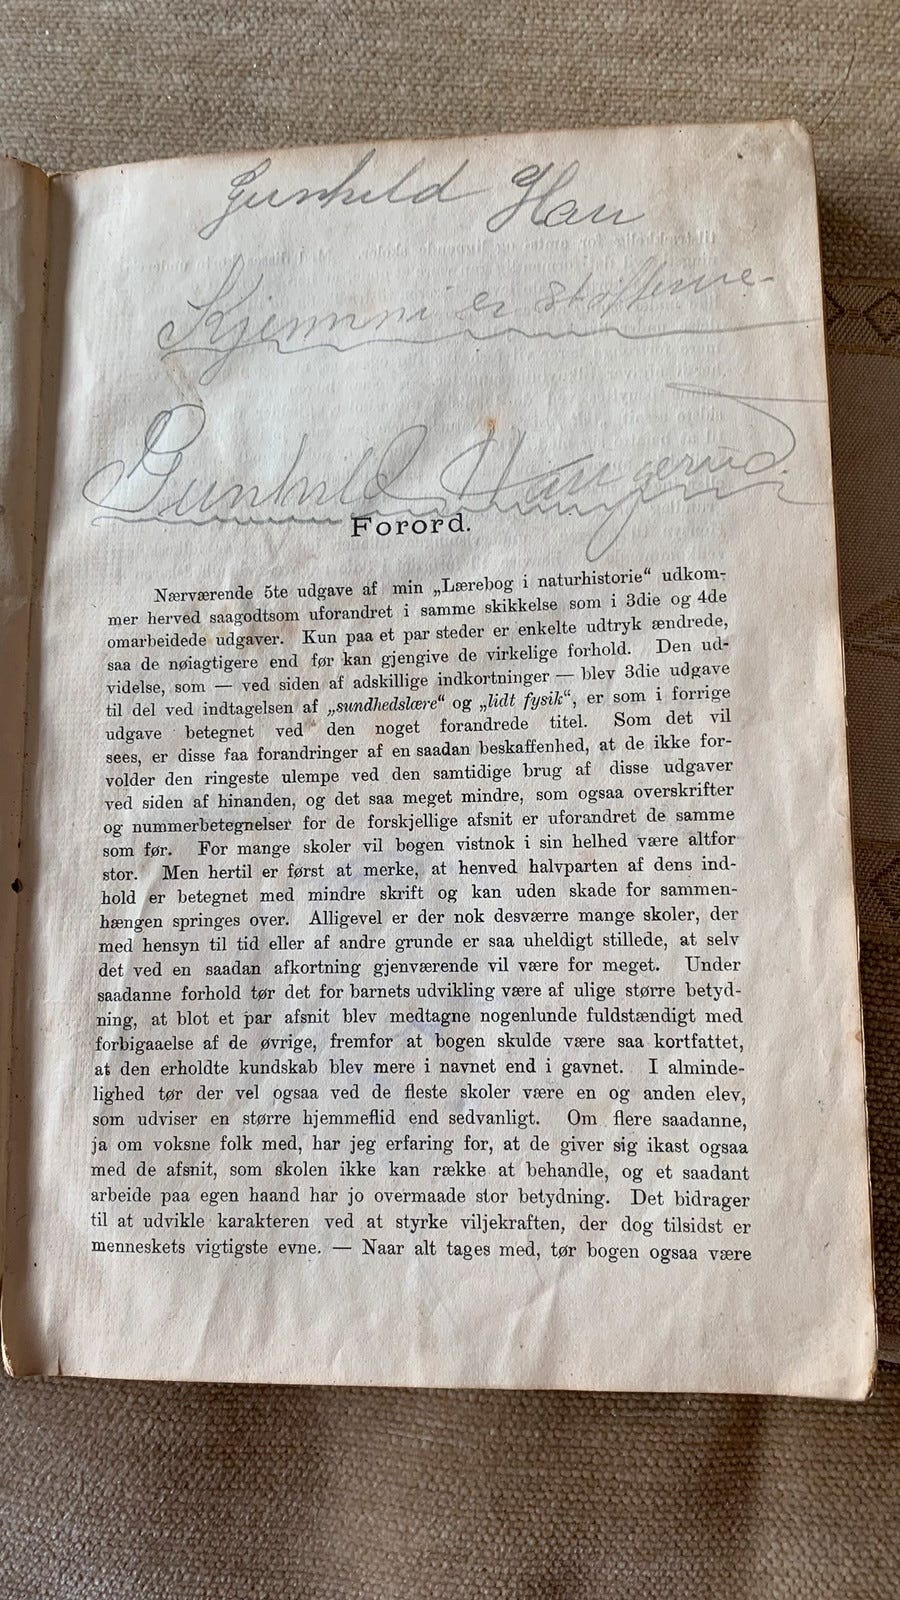 Gunhild Hau
Kjemmi er stofferne-
Gunhild Haugerud.
Forord.
Nærværende 5te udgave af min „Lærebog i naturhistorie“ udkom-
mer herved saagodtsom uforandret i samme skikkelse som i 3die og 4de
omarbeidede udgaver. Kun paa et par steder er enkelte udtryk ændrede,
saa de nøiagtigere end før kan gjengive de virkelige forhold. Den ud-
videlse, som — ved siden af adskillige indkortninger — blev 3die udgave
til del ved indtagelsen af „sundhedslære“ og „lidt fysik“, er som i forrige
udgave betegnet ved den noget forandrede titel. Som det vil
sees, er disse faa forandringer af en saadan beskaffenhed, at de ikke for-
volder den ringeste ulempe ved den samtidige brug af disse udgaver
ved siden af hinanden, og det saa meget mindre, som ogsaa overskrifter
og nummerbetegnelser for de forskjellige afsnit er uforandret de samme
som før. For mange skoler vil bogen vistnok i sin helhed være altfor
stor. Men hertil er først at merke, at henved halvparten af dens ind-
hold er betegnet med mindre skrift og kan uden skade for sammen-
hængen springes over. Alligevel er der nok desværre mange skoler, der
med hensyn til tid eller af andre grunde er saa uheldigt stillede, at selv
det ved en saadan afkortning gjenværende vil være for meget. Under
saadanne forhold tør det for barnets udvikling være af ulige større betyd-
ning, at blot et par afsnit blev medtagne nogenlunde fuldstændigt med
forbigaaelse af de øvrige, fremfor at bogen skulde være saa kortfattet,
at den erholdte kundskab blev mere i navnet end i gavnet. I alminde-
lighed tør der vel ogsaa ved de fleste skoler være en og anden elev,
som udviser en større hjemmeflid end sedvanligt. Om flere saadanne,
ja om voksne folk med, har jeg erfaring for, at de giver sig ikast ogsaa
med de afsnit, som skolen ikke kan række at behandle, og et saadant
arbeide paa egen haand har jo overmaade stor betydning. Det bidrager
til at udvikle karakteren ved at styrke viljekraften, der dog tilsidst er
menneskets vigtigste evne. — Naar alt tages med, tør bogen ogsaa være